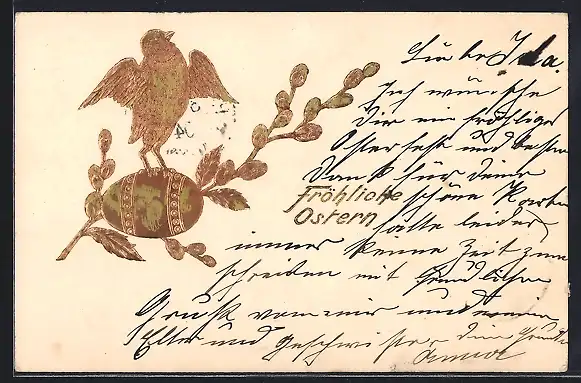 Liebe Ida.
Ich wünsche
dir ein fröhliges
Osterfest und besten
Dank für deine
Fröhliche
Ostern
schöne Karte
hatte leider
immer keine Zeit zum
schreiben mit
Gruß von mir und meine
Eltern und Geschwister deine Freundin